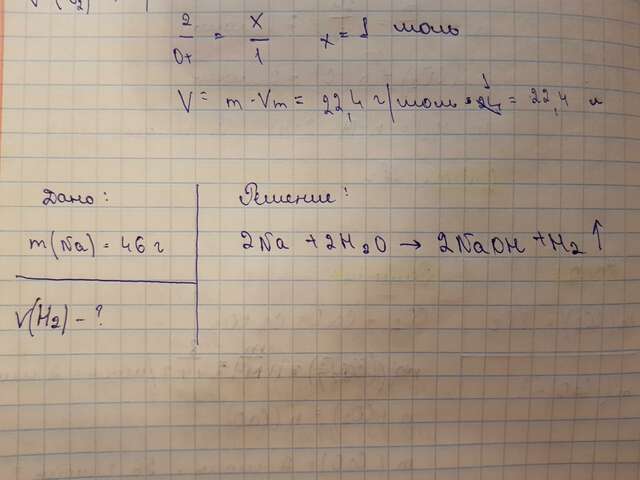 V(
2/0+ = X/1 x = 1 моль
V = m · Vm = 22,4 г/моль · 1 = 22,4 л
Дано:
m(Na) = 46 г
V(H₂) - ?
Решение:
2Na + 2H₂O → 2NaOH + H₂ ↑